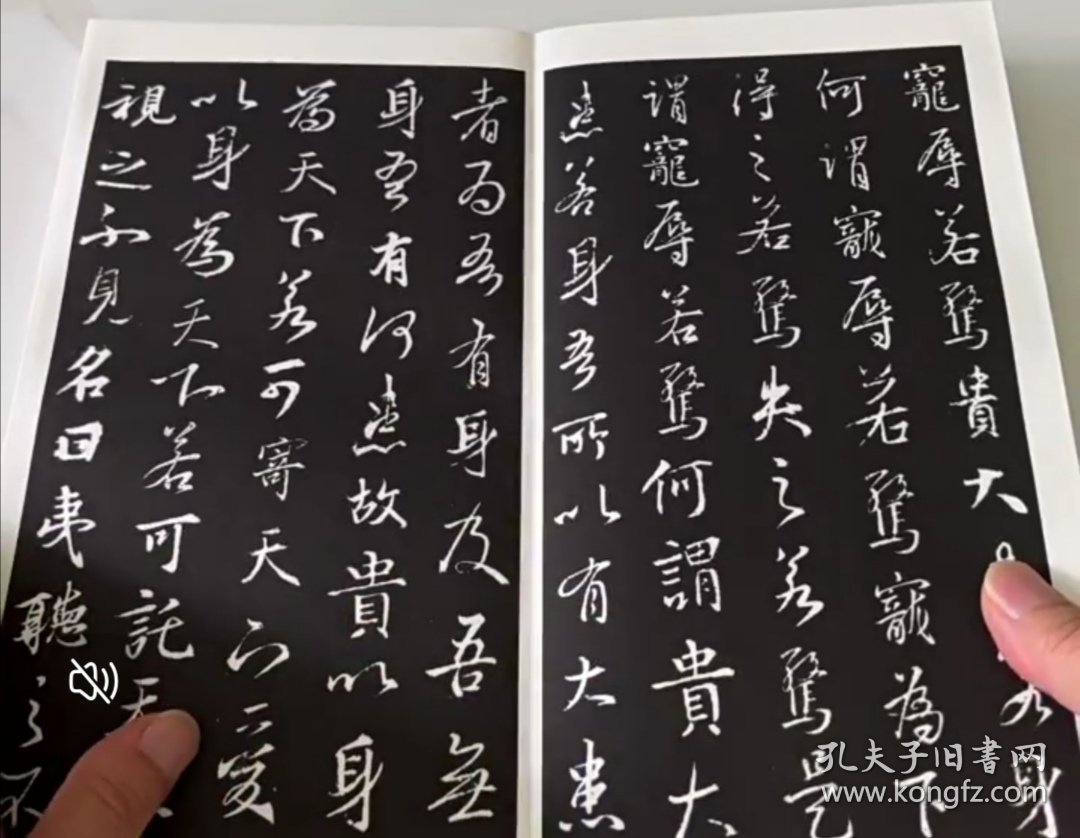 寵辱若驚貴大若身
何謂寵辱若驚寵為下
得之若驚失之若驚是
謂寵辱若驚何謂貴大
患若身吾所以有大患
者為吾有身及吾無
身吾有何患故貴以身
為天下若可寄天下愛
以身為天下若可託天
視之不見名曰夷聽之不
孔夫子旧书网
www.kongfz.com